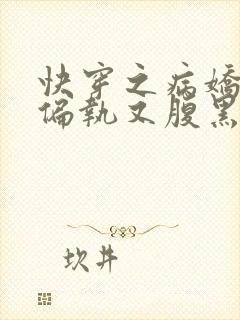 快穿之病嬌
偏執又腹黑
坎井